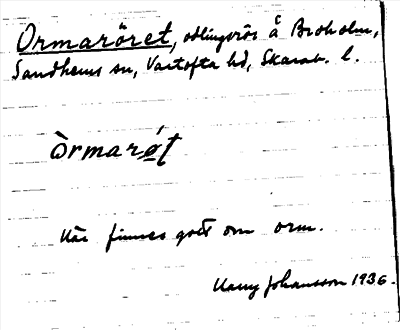 Ormaröret, odlingsrös å Broholm,
Sandhems sn, Vartofta hd, Skarab. l.
òrmarǿt
Här finnes gott om orm.
Harry Johansson 1936.